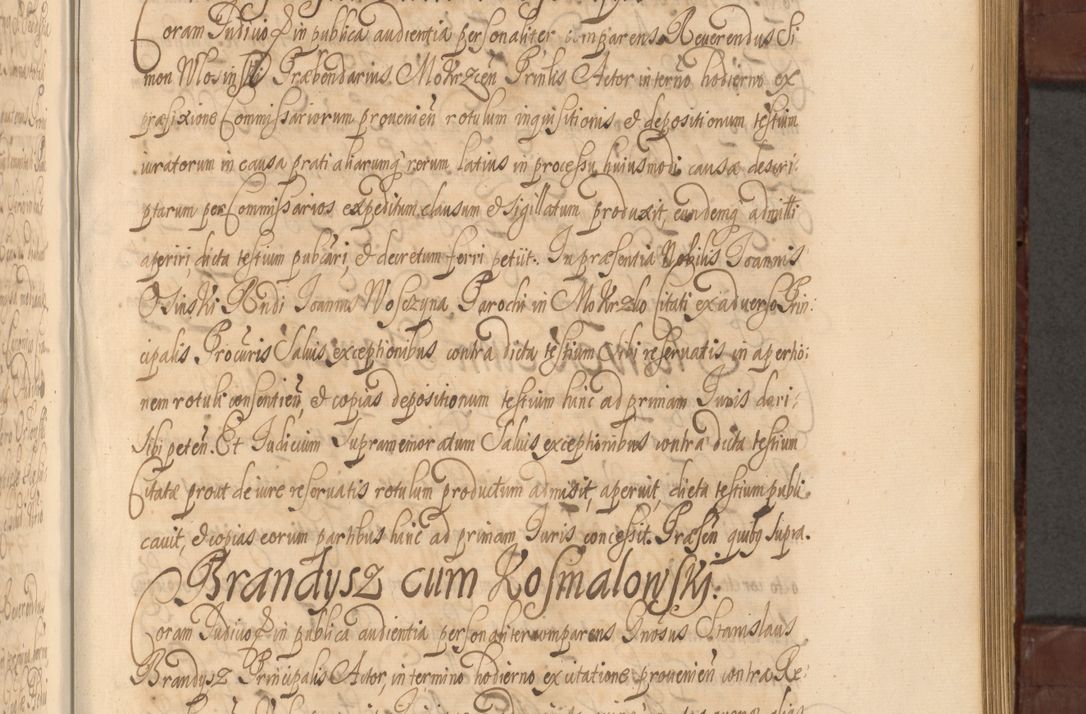 Coram Judicio & in publica audientia personaliter comparens Reverendus Si
mon Mosinski Præbendarius Mokrzcen Prinlis Actor in termo hodierno ex
præfixione Commissariorum provenien rotulum inquisitionis & depositionum testium
iuratorum in causa prati aliarumq rerum latius in processu huiusmodi causæ descri-
ptarum per Commissarios expeditum clausum & sigillatum produxit, eundemq admitti
aperiri, dicta testium publicari, & decretum ferri petiit. In præsentia Nobilis Joannis
Osinski Rndi Joannis Wosczyna Parochi in Mokrzko citati ex adverso Prin:
cipalis Procuris Salvis exceptionibus contra dicta testium sibi reservatis in apertio:
nem rotuli consentien, & copias depositionum testium hinc ad primam Juris dari:
sibi peten. Et Judicium supramemoratum Salvis exceptionibus contra dicta testium
Citatæ prout de iure reservatis rotulum productum admisit, aperuit, dicta testium publi
cavit, & copias eorum partibus hinc ad primam Juris concessit. Præsen quibq supra.
Brandysz cum Kosmalowsky.
Coram Judicio & in publica audientia personaliter comparens Gnosus Stanislaus
Brandysz Principalis Actor, in termino hodierno ex citatione provenien contra Re: